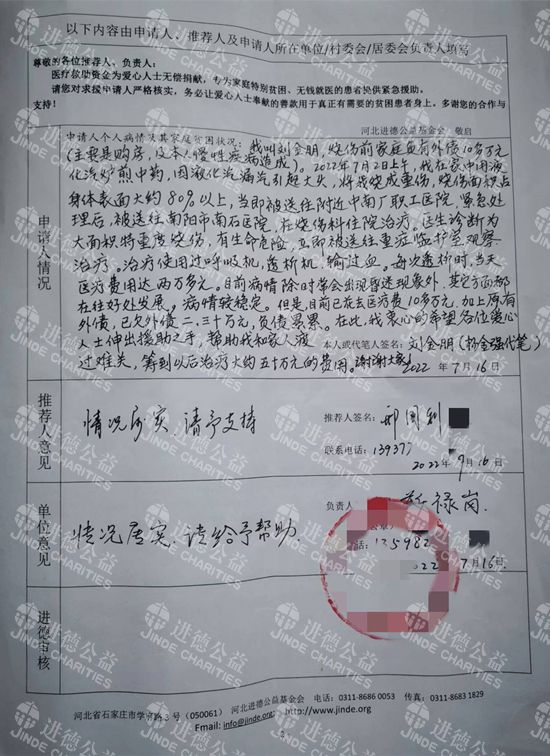 以下内容由申请人、推荐人及申请人所在单位/村委会/居委会负责人填写
尊敬的各位推荐人、负责人:
医疗救助资金为爱心人士无偿捐献,专为家庭特别贫困、无钱就医的患者提供紧急援助。
请您对求援申请人严格核实,务必让爱心人士奉献的善款用于真正有需要的贫困患者身上。多谢您的合作与
支持!
河北进德公益基金会 敬启
申请人情况
申请人个人病情及其家庭贫困状况:我叫刘金朋,烧伤前家庭就有外债10多万元
(主要是购房,及本人慢性疾病造成)。2022年7月2日上午,我在家中用液
化汽炉煎中药,因液化汽漏汽引起大火,将我烧成重伤,烧伤面积占
身体表面大约80%以上,当即被送往附近中南厂职工医院,紧急处
理后,被送往南阳市南石医院,在烧伤科住院治疗。医生诊断为
大面积特重度烧伤,有生命危险,立即被送往重症监护室观察
治疗。治疗使用过呼吸机,透析机,输过血。每次透析时,当天
医疗费用达两万多元。目前病情除时常会出现昏迷现象外,其它方面都
在往好处发展,病情较稳定。但是,目前已花去医疗费10多万元,加上原有
外债,已欠外债二、三十万元,负债累累。在此,我衷心的希望各位爱心
人士伸出援助之手,帮助我和家人渡
本人或代笔人签名:刘金朋(代笔)
过难关,筹到以后治疗大约五十万元的费用。谢谢大家!
2022年7月16日
推荐人意见
情况属实,请予支持
推荐人签名:
联系电话:13937
2022年7月16日
单位意见
情况居实,请给予帮助.
负责人
禄岗.
话:135982
022 7月16日.
进德审核
河北进德公益基金会 电话:0311-8686 0053 传真:0311-8683 1829
河北省石家庄市学府路3号(050061) http://www.jinde.org
Email: info@jinde.org;
进德公益
JINDE CHARITIES